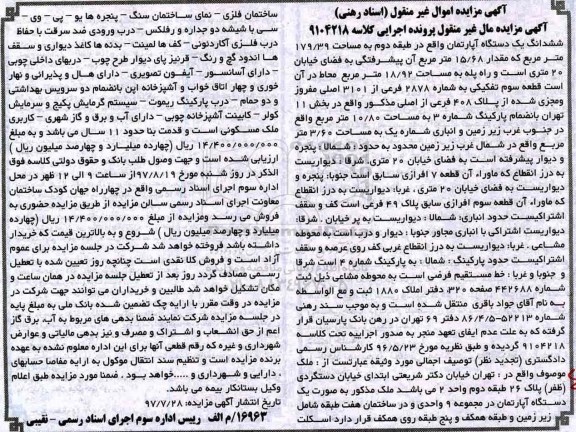 آگهی مزایده اموال غیر منقول (اسناد رهنی)
آگهی مزایده مال غیر منقول پرونده اجرایی کلاسه ۹۱۰۴۲۱۸
ششدانگ یک دستگاه آپارتمان واقع در طبقه دوم به مساحت ۱۷۹/۳۹
متر مربع که مقدار ۱۵/۶۸ متر مربع آن پیشرفتگی به فضای خیابان
۲۰ متری است و راه پله به مساحت ۱۸/۹۲ متر مربع محاط در آن
است قطعه سوم تفکیکی به شماره ۲۸۷۸ فرعی از ۳۱۰۱ اصلی مفروز
ومجزی شده از پلاک ۴۰۸ فرعی از اصلی مذکور واقع در بخش ۱۱
تهران بانضمام پارکینگ شماره ۳ به مساحت ۱۰/۸۰ متر مربع واقع
در جنوب غرب زیر زمین و انباری شماره یک به مساحت ۳/۶۰ متر
مربع واقع در شمال غرب زیر زمین محدود به حدود : شمالا : پنجره
و دیوار پیشرفته است به فضای خیابان ۲۰ متری. شرقا : دیواریست
به درز انقطاع که ماوراء آن قطعه ۷ افرازی سابق است جنوبا: پنجره و
دیواریست به فضای خیابان ۲۰ متری . غربا: دیواریست به درز انقطاع
که ماوراء آن قطعه سوم افرازی سابق پلاک ۴۹ فرعی است کف و سقف
اشتراکیست حدود انباری: شمالا : دیواریست به پر خیابان . شرقا:
دیواریست اشتراکی با انباری مجاور جنوبا : دیوار و درب است به محوطه
مشاعی . غربا: دیواریست به درز انقطاع غربی کف روی عرصه و سقف
اشتراکیست حدود پارکینگ : شمالا : به پارکینگ شماره ۴ است شرقا
و جنوبا و غربا : خط مستقیم فرضی است به محوطه مشاعی ذیل ثبت
شماره ۴۴۲۶۸۸ صفحه ۳۲۰ دفتر املاک ۱۸۸۰ ثبت و مع الواسطه
به نام آقای جواد باقری منتقل شده است و به موجب سند رهنی
شماره ۵۲۲۱۳-۸۶/۴/۵ دفتر ۶۹ تهران در رهن بانک پارسیان قرار
گرفته که به علت عدم ایفای تعهد منجر به صدور اجراییه تحت کلاسه
۹۱۰۴۲۱۸ گردیده و طبق نظریه مورخ ۹۶/۵/۲۳ کارشناس رسمی
دادگستری (تجدید نظر) توصیف اجمالی مورد وثیقه عبارتست از : ملک
موصوف واقع در : تهران خیابان دکتر شریعتی ابتدای خیابان دستگردی
(ظفر) پلاک ۲۶ طبقه دوم واحد ۲ می باشد ملک مذکور به صورت یک
دستگاه آپارتمان در مجموعه ۹ واحدی و در ساختمان هفت طبقه شامل
زیر زمین و طبقه همکف و پنج طبقه روی همکف قرار دارد اسکلت
ساختمان فلزی - نمای ساختمان سنگ - پنجره ها یو - پی - وی -
سی با شیشه دو جداره و رفلکس - درب ورودی ضد سرقت با حفاظ
درب فلزی آکاردئونی - کف ها لمینت - بدنه ها کاغذ دیواری و سقف
ها اندود گچ و رنگ - قرنیز پای دیوار طرح چوب - دربهای داخلی چوبی
- دارای آسانسور - آیفون تصویری - دارای هال و پذیرائی و نهار
خوری و چهار اتاق خواب و آشپزخانه اپن بانضمام دو سرویس بهداشتی
و دو حمام - درب پارکینگ ریموت - سیستم گرمایش پکیج و سرمایش
کولر - کابینت آشپزخانه چوبی - دارای آب و برق و گاز شهری - کاربری
ملک مسکونی است و قدمت بنا حدود ۱۱ سال می باشد و به مبلغ
۱۴/۴۰۰/۰۰۰/۰۰۰ ریال (چهارده میلیارد و چهارصد میلیون ریال)
ارزیابی شده است و جهت وصول طلب بانک و حقوق دولتی کلاسه فوق
الذکر در روز شنبه مورخ ۹۷/۸/۱۹از ساعت ۹ الی ۱۲ ظهر در محل
اداره سوم اجرای اسناد رسمی واقع در چهارراه جهان کودک ساختمان
معاونت اجرای اسناد رسمی سالن مزایده از طریق مزایده حضوری به
فروش می رسد ومزایده از مبلغ ۱۴/۴۰۰/۰۰۰/۰۰۰ ریال (چهارده
میلیارد و چهارصد میلیون ریال ) شروع و به بالاترین قیمت که خریدار
داشته باشد فروخته خواهد شد شرکت در جلسه مزایده برای عموم
آزاد است و فروش کلا نقدی است چنانچه روز تعیین شده با تعطیل
رسمی مصادف گردد روز بعد از تعطیل جلسه مزایده در همان ساعت و
مکان تشکیل خواهد شد طالبین و خریداران می توانند جهت شرکت در
مزایده در وقت مقرر با ارایه چک تضمین شده بانک ملی به مبلغ پایه
در جلسه مزایده شرکت نمایند ضمنا بدهی های مربوط به آب، برق گاز
اعم از حق انشعاب و اشتراک و مصرف و نیز بدهی مالیاتی و عوارض
شهرداری و غیره که رقم قطعی آنها برای این اداره معلوم نشده به عهده
برنده مزایده است و تنظیم سند انتقال موکول به ارایه مفاصا حسابهای
دارایی و شهرداری و .....خواهد بود . ضمنا مورد مزایده طبق اعلام
وکیل بستانکار بیمه می باشد.
تاریخ انتشار آگهی مزایده: ۹۷/۷/۲۸
۱۶۹۶۳/م الف رییس اداره سوم اجرای اسناد رسمی - نقیبی